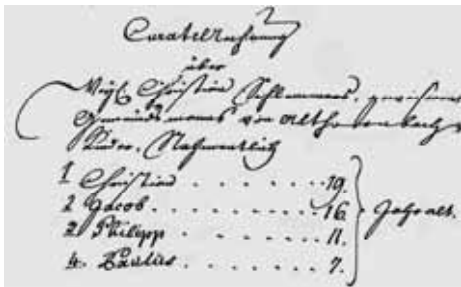 Curatelrechnung
über
Weyl. Christian Schlemmers, gewesenen
Gemeindsmanns von Althornbach
Kinder, Nahmentlich
1 Christian . . . . . . . 19.
2 Jacob. . . . . . . . . 16. Jahr alt.
3 Philipp . . . . . . . 11.
4. . . . . . . . 7.